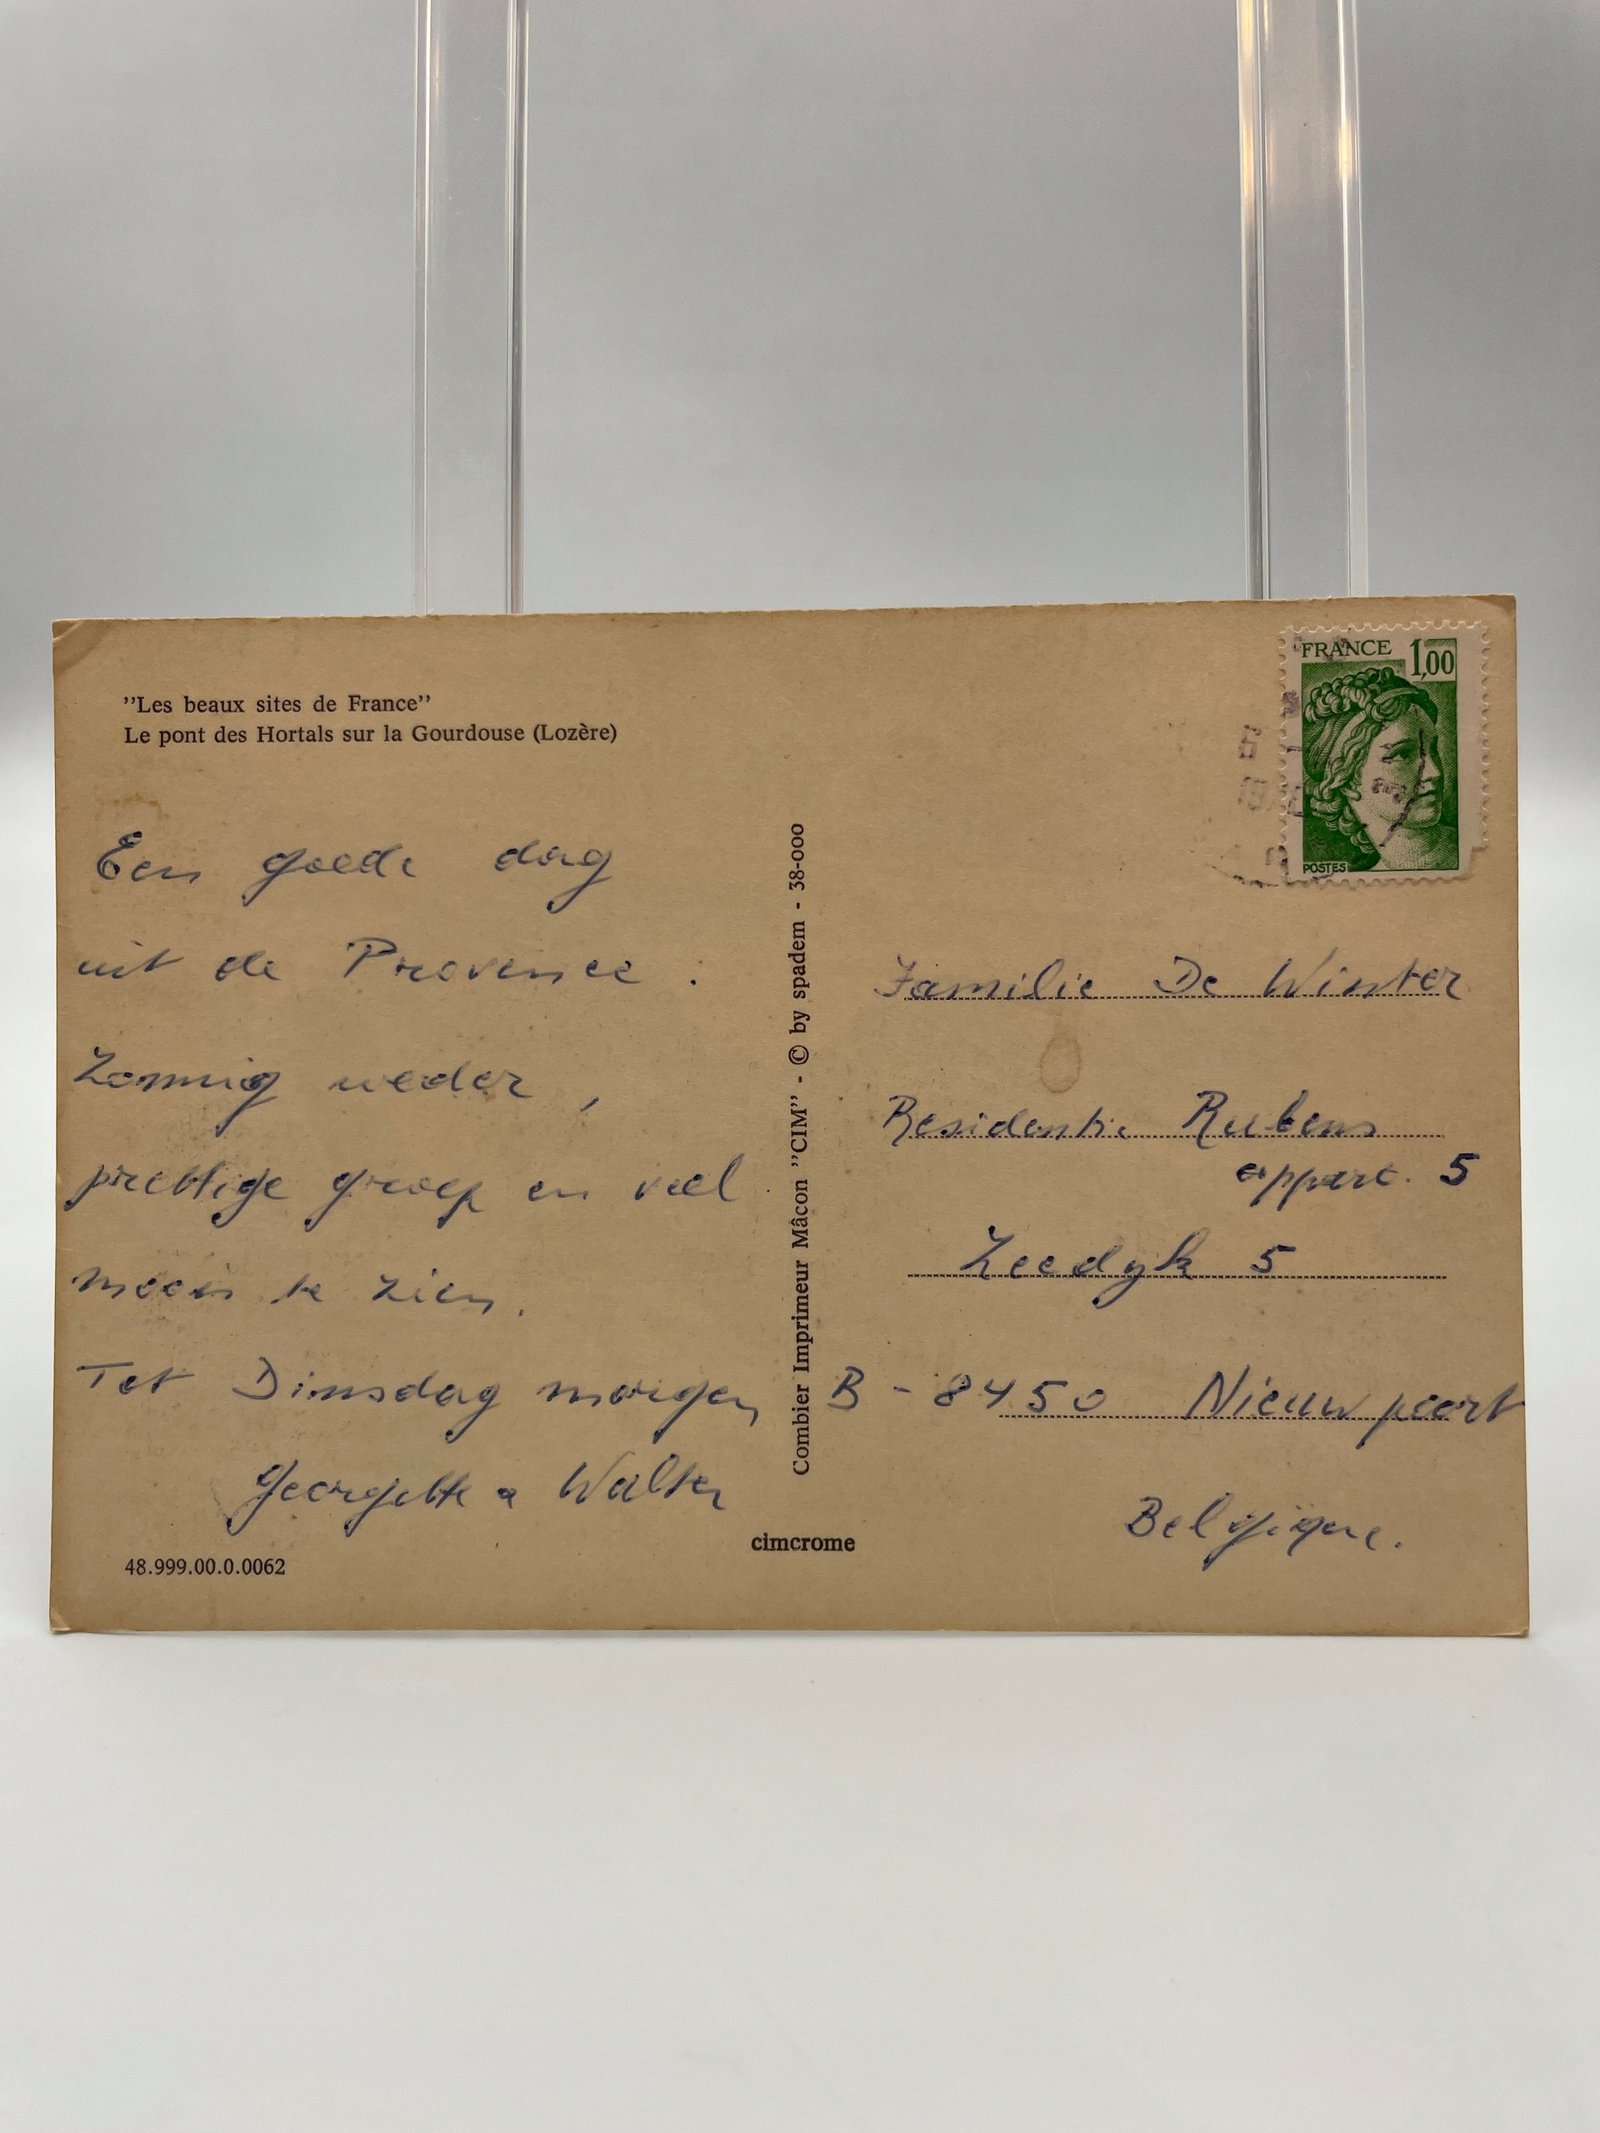 "Les beaux sites de France"
Le pont des Hortals sur la Gourdouse (Lozère)
Een goede dag
uit de Provence.
Zonnig weder,
prettige groep en veel
moois te zien.
Tot Dinsdag morgen
Georgette & Walter
48.999.00.0.0062
Combier Imprimeur Mâcon "CIM" - © by spadem - 38-000
cimcrome
FRANCE 1,00
POSTES
Familie De Winter
Residentie Rubens
appart. 5
Zeedyk 5
B - 8450 Nieuwpoort
Belgique.